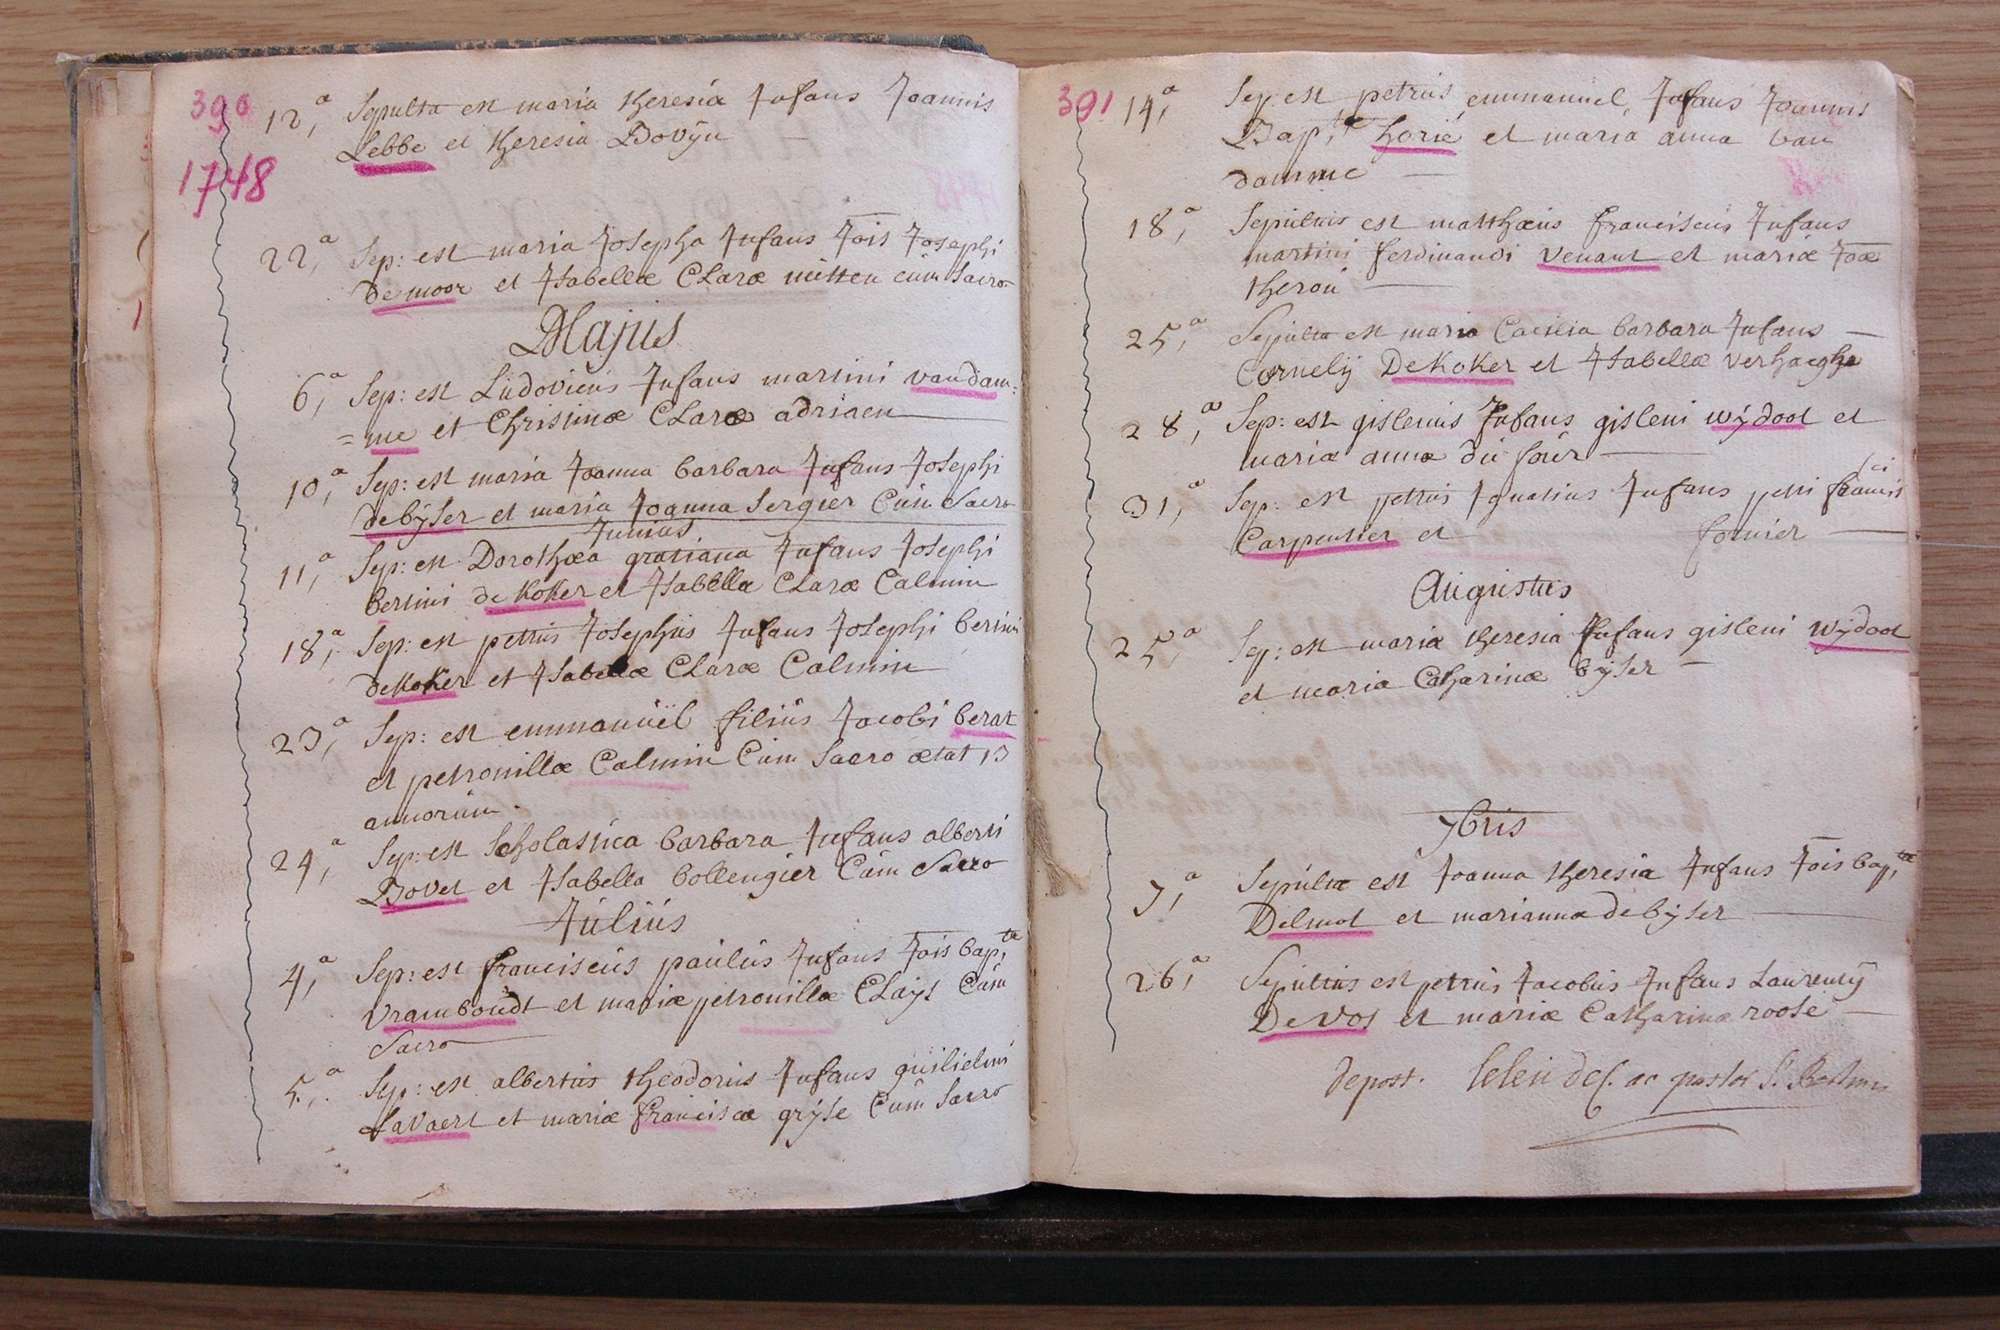 390
1748
12,a Sepulta est maria theresia Infans Joannis
Lebbe et theresia Bovÿn
22,a Sep: est maria Josepha Infans Jois Josephi
de moor et Isabellæ Claræ mitten cum sacro
Majus
6,a Sep: est Ludovicus Infans martini vandam=
=me et Christinæ Claræ adriaen
10,a Sep: est maria Joanna barbara Infans Josephi
debÿser et maria Joanna Sergier Cum Sacro
Junius
11,a Sep: est Dorothæa gratiana Infans Josephi
bertini de Koker et Isabella Claræ Calmin
18,a Sep: est petrus Josephus Infans Josephi bertini
deKoker et Isabellæ Claræ Calmin
23,a Sep: est emmanuël filius Jacobi berat
et petronillæ Calmin Cum Sacro ætat 13
annorum.
24,a Sep: est Scholastica barbara Infans alberti
Bovet et Isabella bollengier Cum Sacro
Julius
4,a Sep: est franciscus paulus Infans Jois bap,tæ
Vramboudt et mariæ petronillæ Claÿs Cum
Sacro
5,a Sep: est albertus theodorus Infans guilielmi
Lavaert et mariæ franciscæ grÿse Cum Sacro
391
14,a Sep est petrus emmanuel, Infans Joannis
Bap,tæ horié et maria anna van
damme
18,a Sepultus est matthæus franciscus Infans
martini ferdinandi Venant et mariæ Joæ
theron
25,a Sepulta est maria Cæcilia barbara Infans
Cornelÿ DeKoker et Isabellæ Verhaeghe
28,a Sep: est gislenus Infans gisleni wÿdoot et
mariæ annæ du four
31,a Sep: est petrus Ignatius Infans petri francisci
Carpentier et fournier
Augustus
25,a Sep: est maria theresia Infans gisleni wÿdoot
et maria Catharinæ bÿser
7bris
7,a Sepulta est Joanna theresia Infans Jois bap,tæ
Delmot et marianna debÿser
26,a Sepultus est petrus Jacobus Infans Laurentÿ
De Vos et mariæ Catharinæ roose
depost. ac pastor